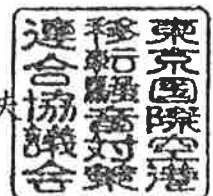 東京国際空港
移転騒音対策
連合協議会